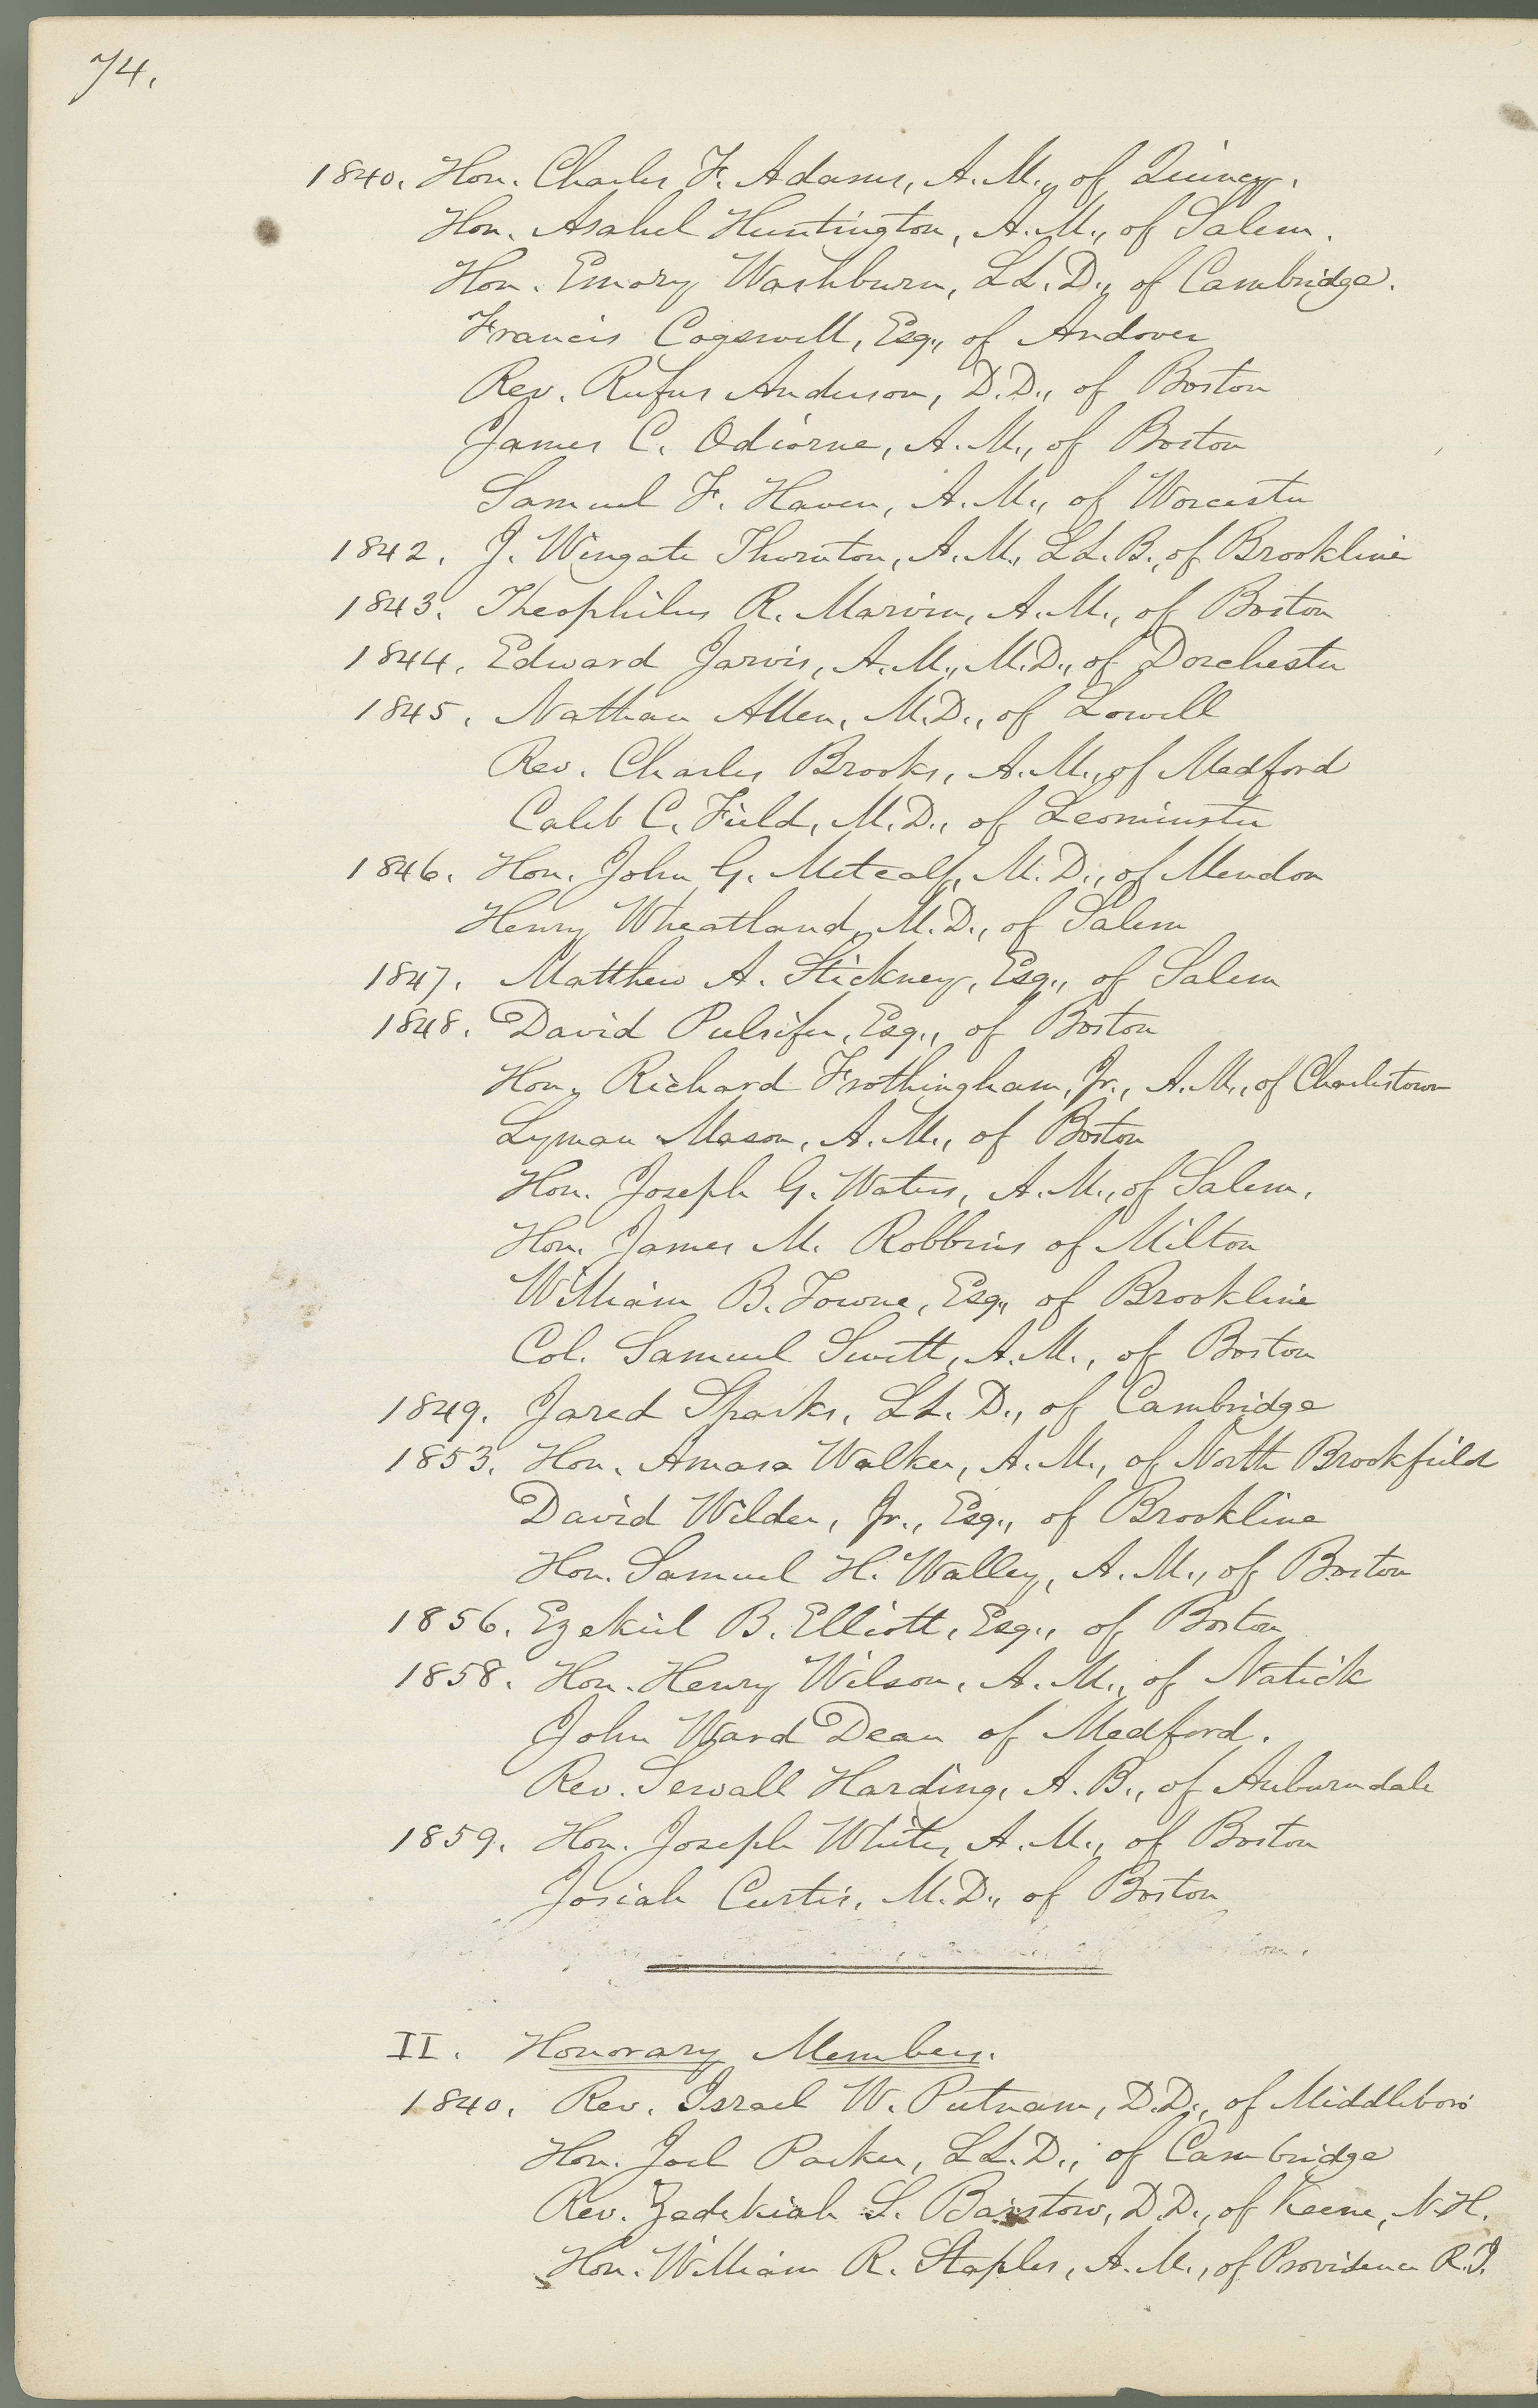 74.
1840. Hon. Charles F. Adams, A.M., of Quincy.
Hon. Asahel Huntington, A.M., of Salem.
Hon. Emory Washburn, LL.D., of Cambridge.
Francis Cogswell, Esq., of Andover
Rev. Rufus Anderson, D.D., of Boston
James C. Odiorne, A.M., of Boston
Samuel F. Haven, A.M., of Worcester
1842. J. Wingate Thornton, A.M., LL.B., of Brookline
1843. Theophilus R. Marvin, A.M., of Boston
1844. Edward Jarvis, A.M., M.D., of Dorchester
1845. Nathan Allen, M.D., of Lowell
Rev. Charles Brooks, A.M., of Medford
Caleb C. Field, M.D., of Leominster
1846. Hon. John G. Metcalf, M.D., of Mendon
Henry Wheatland, M.D., of Salem
1847. Matthew A. Stickney, Esq., of Salem
1848. David Pulsifer, Esq., of Boston
Hon. Richard Frothingham, Jr., A.M., of Charlestown
Lyman Mason, A.M., of Boston
Hon. Joseph G. Waters, A.M., of Salem.
Hon. James M. Robbins of Milton
William B. Towne, Esq., of Brookline
Col. Samuel Swett, A.M., of Boston
1849. Jared Sparks, LL.D., of Cambridge
1853. Hon. Amasa Walker, A.M., of North Brookfield
David Wilder, Jr., Esq., of Brookline
Hon. Samuel H. Walley, A.M., of Boston
1856. Ezekiel B. Elliott, Esq., of Boston
1858. Hon. Henry Wilson, A.M., of Natick
John Ward Dean of Medford.
Rev. Sewall Harding, A.B., of Auburndale
1859. Hon. Joseph White, A.M., of Boston
Josiah Curtis, M.D., of Boston
II. Honorary Members.
1840. Rev. Israel W. Putnam, D.D., of Middleboro'
Hon. Joel Parker, LL.D., of Cambridge
Rev. Zedekiah S. Barstow, D.D., of Keene, N.H.
Hon. William R. Staples, A.M., of Providence R.I.